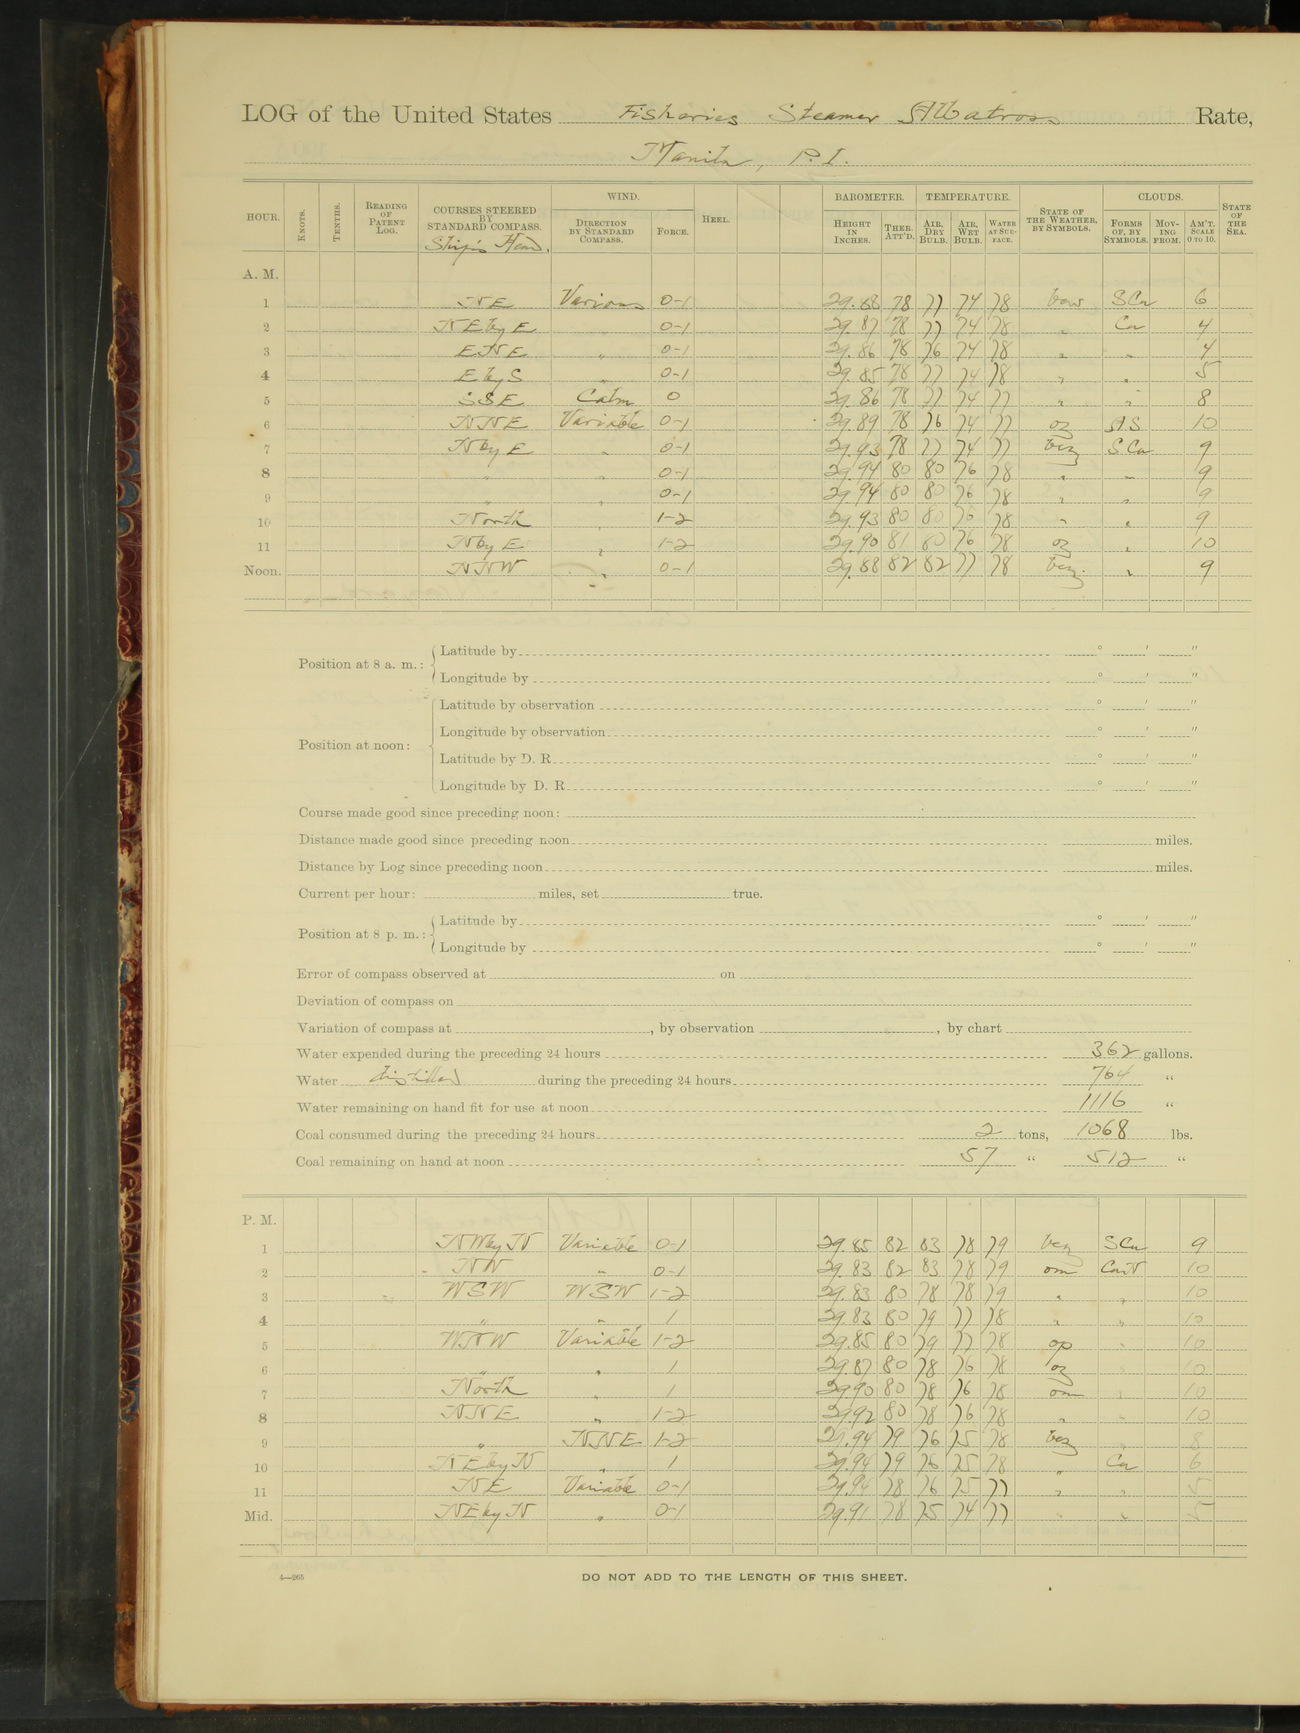 LOG of the United States Fisheries Steamer Albatross Rate,
Manila, P. I.
HOUR. KNOTS. TENTHS. READING OF PATENT LOG. COURSES STEERED BY STANDARD COMPASS. Ship's Head. WIND. DIRECTION BY STANDARD COMPASS. FORCE. HEEL. BAROMETER. HEIGHT IN INCHES. THER. ATT'D. TEMPERATURE. AIR, DRY BULB. AIR, WET BULB. WATER AT SURFACE. STATE OF THE WEATHER, BY SYMBOLS. CLOUDS. FORMS OF, BY SYMBOLS. MOVING FROM. AM'T. SCALE 0 TO 10. STATE OF THE SEA.
A. M.
1 NE Various 0-1 29.88 78 77 74 78 S Cu 6
2 NE by E 0-1 29.87 78 77 74 78 " Cu 4
3 ENE " 0-1 29.86 78 76 74 78 " " 4
4 E by S " 0-1 29.85 78 77 74 78 " " 5
5 SSE Calm 0 29.86 78 77 74 77 " " 8
6 NNE Variable 0-1 29.89 78 76 74 77 oz A.S 10
7 N by E " 0-1 29.93 78 77 74 77 bcz S Cu 9
8 " " 0-1 29.94 80 80 76 78 " " 9
9 " " 0-1 29.94 80 80 76 78 " " 9
10 North " 1-2 29.93 80 80 76 78 " " 9
11 N by E " 1-2 29.90 81 80 76 78 oz " 10
Noon. NNW " 0-1 29.88 82 82 77 78 bcz. " 9
Position at 8 a. m.: Latitude by ° ' "
Longitude by ° ' "
Position at noon: Latitude by observation ° ' "
Longitude by observation ° ' "
Latitude by D. R. ° ' "
Longitude by D. R. ° ' "
Course made good since preceding noon:
Distance made good since preceding noon miles.
Distance by Log since preceding noon miles.
Current per hour: miles, set true.
Position at 8 p. m.: Latitude by ° ' "
Longitude by ° ' "
Error of compass observed at on
Deviation of compass on
Variation of compass at , by observation , by chart
Water expended during the preceding 24 hours 362 gallons.
Water distilled during the preceding 24 hours 764 "
Water remaining on hand fit for use at noon 1116 "
Coal consumed during the preceding 24 hours 2 tons, 1068 lbs.
Coal remaining on hand at noon 57 " 512 "
P. M.
1 NW by N Variable 0-1 29.85 82 83 78 79 bcz S Cu 9
2 NW " 0-1 29.83 82 83 78 79 om CuN 10
3 WSW WSW 1-2 29.83 80 78 78 79 " " 10
4 " " 1 29.83 80 79 77 78 " " 10
5 WNW Variable 1-2 29.85 80 79 77 78 op " 10
6 " " 1 29.87 80 78 76 78 oz " 10
7 North " 1 29.90 80 78 76 78 om " 10
8 NNE " 1-2 29.92 80 78 76 78 " " 10
9 " NNE 1-2 29.94 79 76 75 78 bcz " 8
10 NE by N " 1 29.94 79 76 75 78 " Cu 6
11 NE Variable 0-1 29.94 78 76 75 77 " " 5
Mid. NE by N " 0-1 29.91 78 75 74 77 " " 5
4—265
DO NOT ADD TO THE LENGTH OF THIS SHEET.